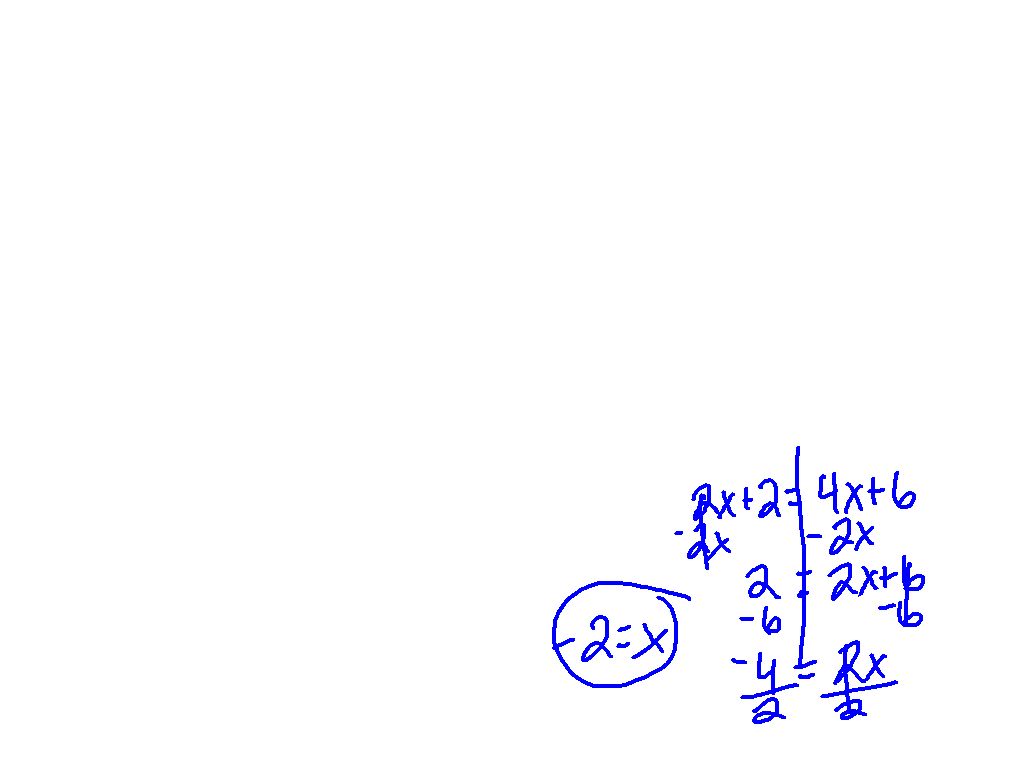 2x+2=4x+6
-2x -2x
2 = 2x+6
-6 -6
-4 = 2x
2 2
-2=x